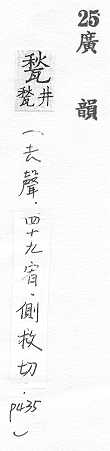 25廣韻
甃
甃井
（去聲．四十九宥．側救切．p435）